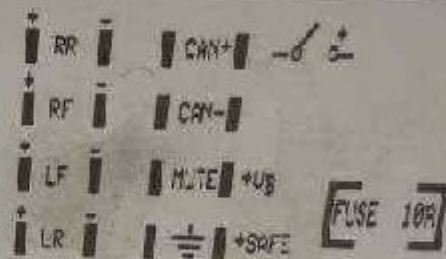 + RR - CAN+ +
+ RF - CAN-
+ LF - MUTE +UB
+ LR - +SAFE FUSE 10A